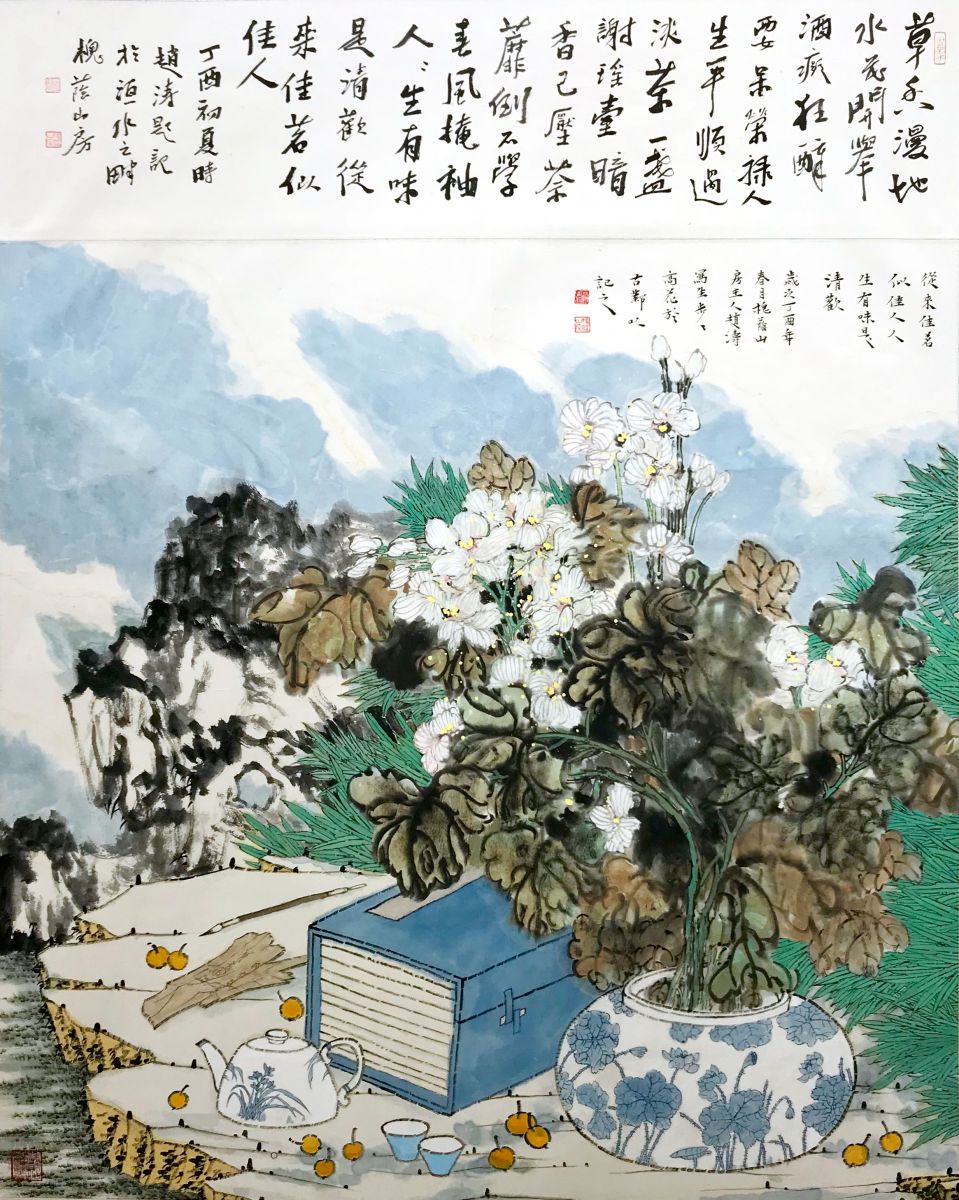 草漫地
水花開翠
酒痴狂醉
榮祿人
生平順過
淡茶一盞
謝瑤臺暗
香已壓荼
蘼倒不學
春風掩袖
人〻生有味
是清歡從
來佳茗似
佳人
丁酉初夏時
趙濤題記
於洹水之畔
槐蔭山房
從來佳茗
似佳人人
生有味是
清歡
歲次丁酉年
春月槐蔭山
房主人趙濤
寫生步〻
高花於
古鄴以
記之